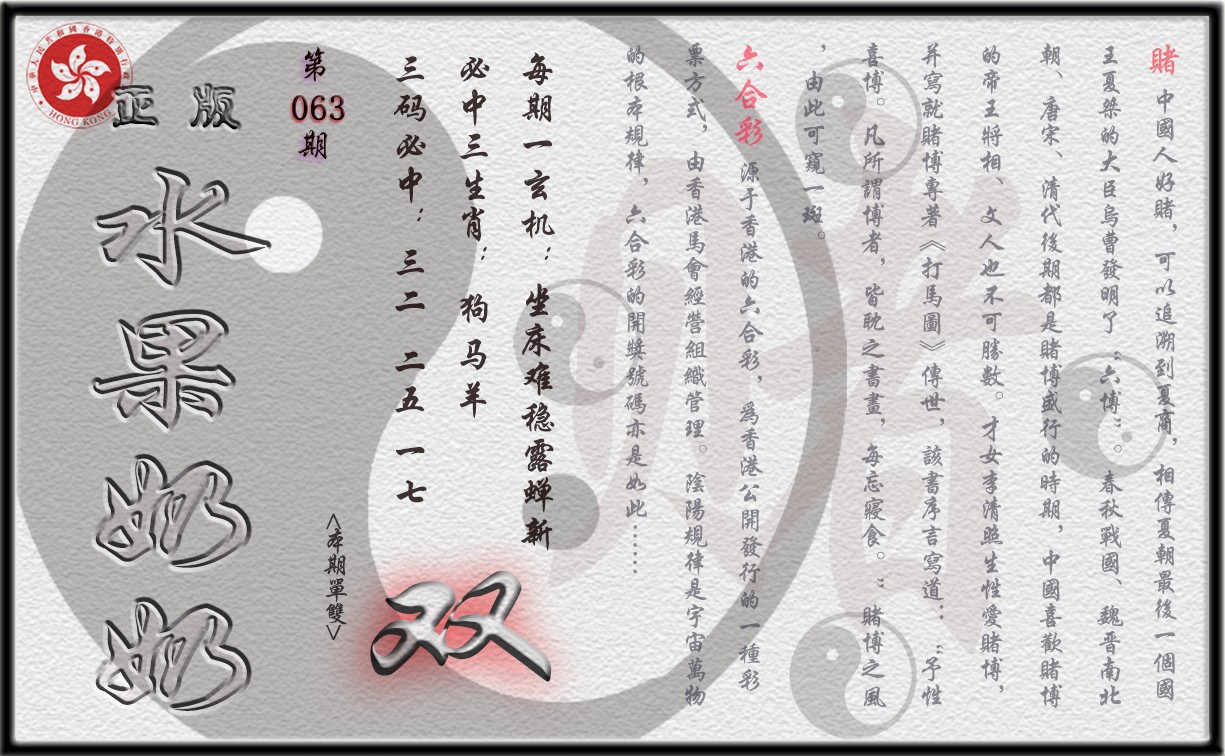 賭 中國人好賭，可以追溯到夏商，相傳夏朝最後一個國
王夏桀的大臣烏曹發明了“六博”。春秋戰國、魏晋南北
朝、唐宋、清代後期都是賭博盛行的時期，中國喜歡賭博
的帝王將相、文人也不可勝數。才女李清照生性愛賭博，
并寫就賭博專著《打馬圖》傳世，該書序言寫道：：“予性
喜博。凡所謂博者，皆耽之書畫，每忘寢食。”賭博之風
，由此可窺一斑。
六合彩 源于香港的六合彩，爲香港公開發行的一種彩
票方式，由香港馬會經營組織管理。陰陽規律是宇宙萬物
的根本規律，六合彩的開獎號碼亦是如此……
每期一玄机：坐床难稳露蝉新
必中三生肖：狗马羊
三码必中：三二 二五 一七
<本期單雙>
双
第
063
期
正版
水果奶奶
中華人民共和國香港特別行政區
HONG KONG